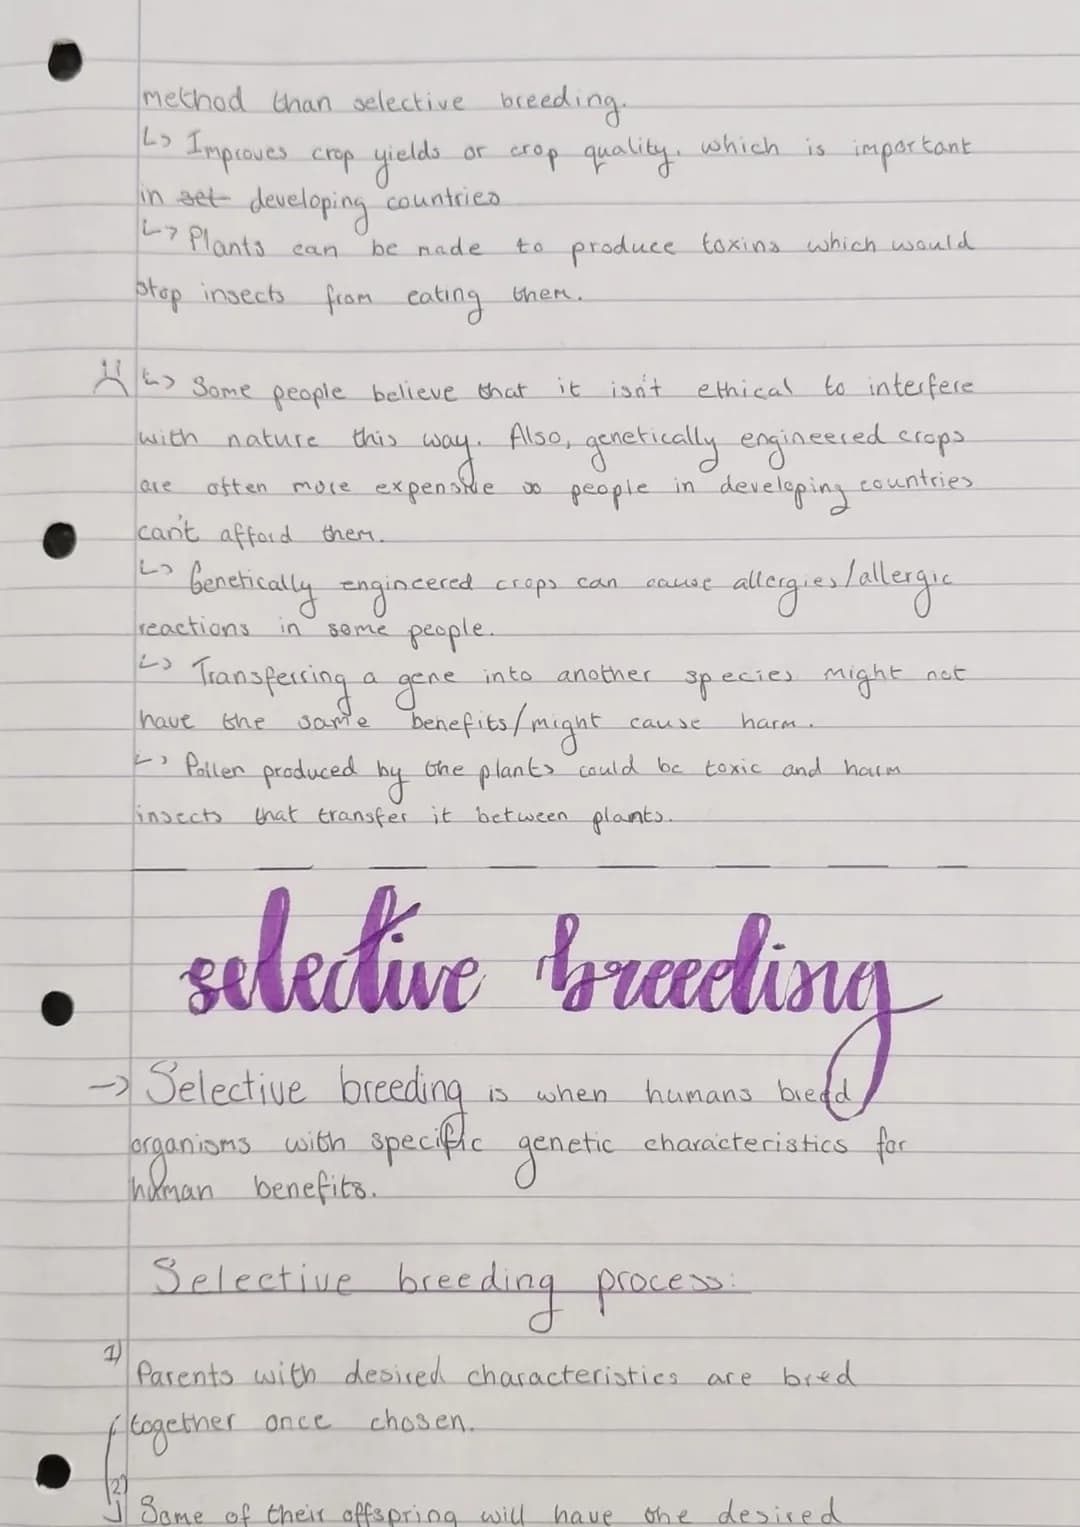 method than selective breeding.
↳ Improves crop yields or crop quality, which is important
in developing countries
↳ Plants can be made to produce toxins which would
stop insects from eating them.
↳ Some people believe that it isn't ethical to interfere
with nature this way. Also, genetically engineered crops
are often more expensive so people in developing countries
can't afford them.
↳ Genetically engineered crops can cause allergies/allergic
reactions in some people.
↳ Transferring a gene into another species might not
have the same benefits/might cause harm.
↳ Pollen produced by the plants could be toxic and harm
insects that transfer it between plants.
selective breeding
→ Selective breeding is when humans breed
organisms with specific genetic characteristics for
human benefits.
Selective breeding process:
1)
Parents with desired characteristics are bred
together once chosen.
2)
Some of their offspring will have the desired